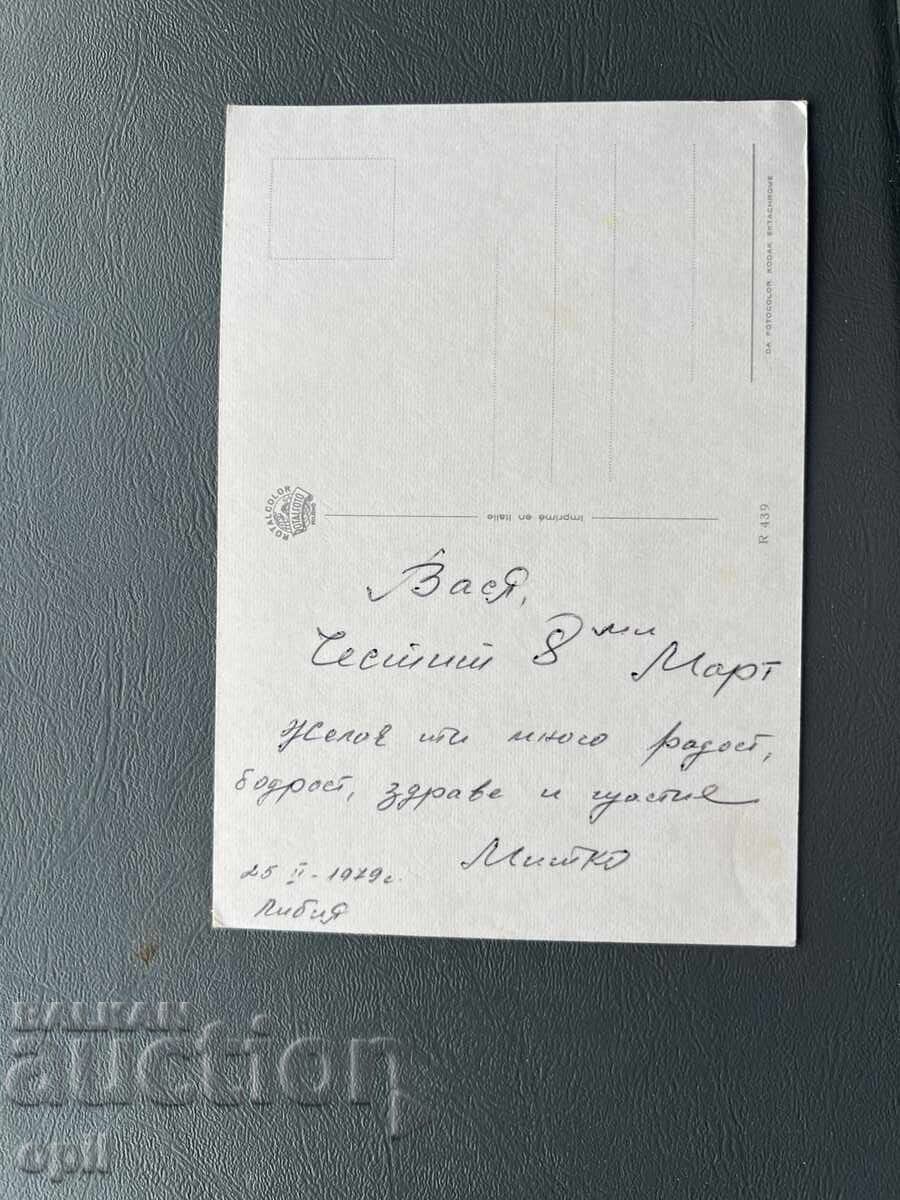 DA FOTOCOLOR KODAK EKTACHROME
ROTALCOLOR
ROTALFOTO
MILANO
Imprimé en Italie
R 439
Вася,
Честит 8ми Март
Желая ти много радост,
бодрост, здраве и щастие
Митко
25 II - 1979 г.
Либия
BALKAN
auction
cpil